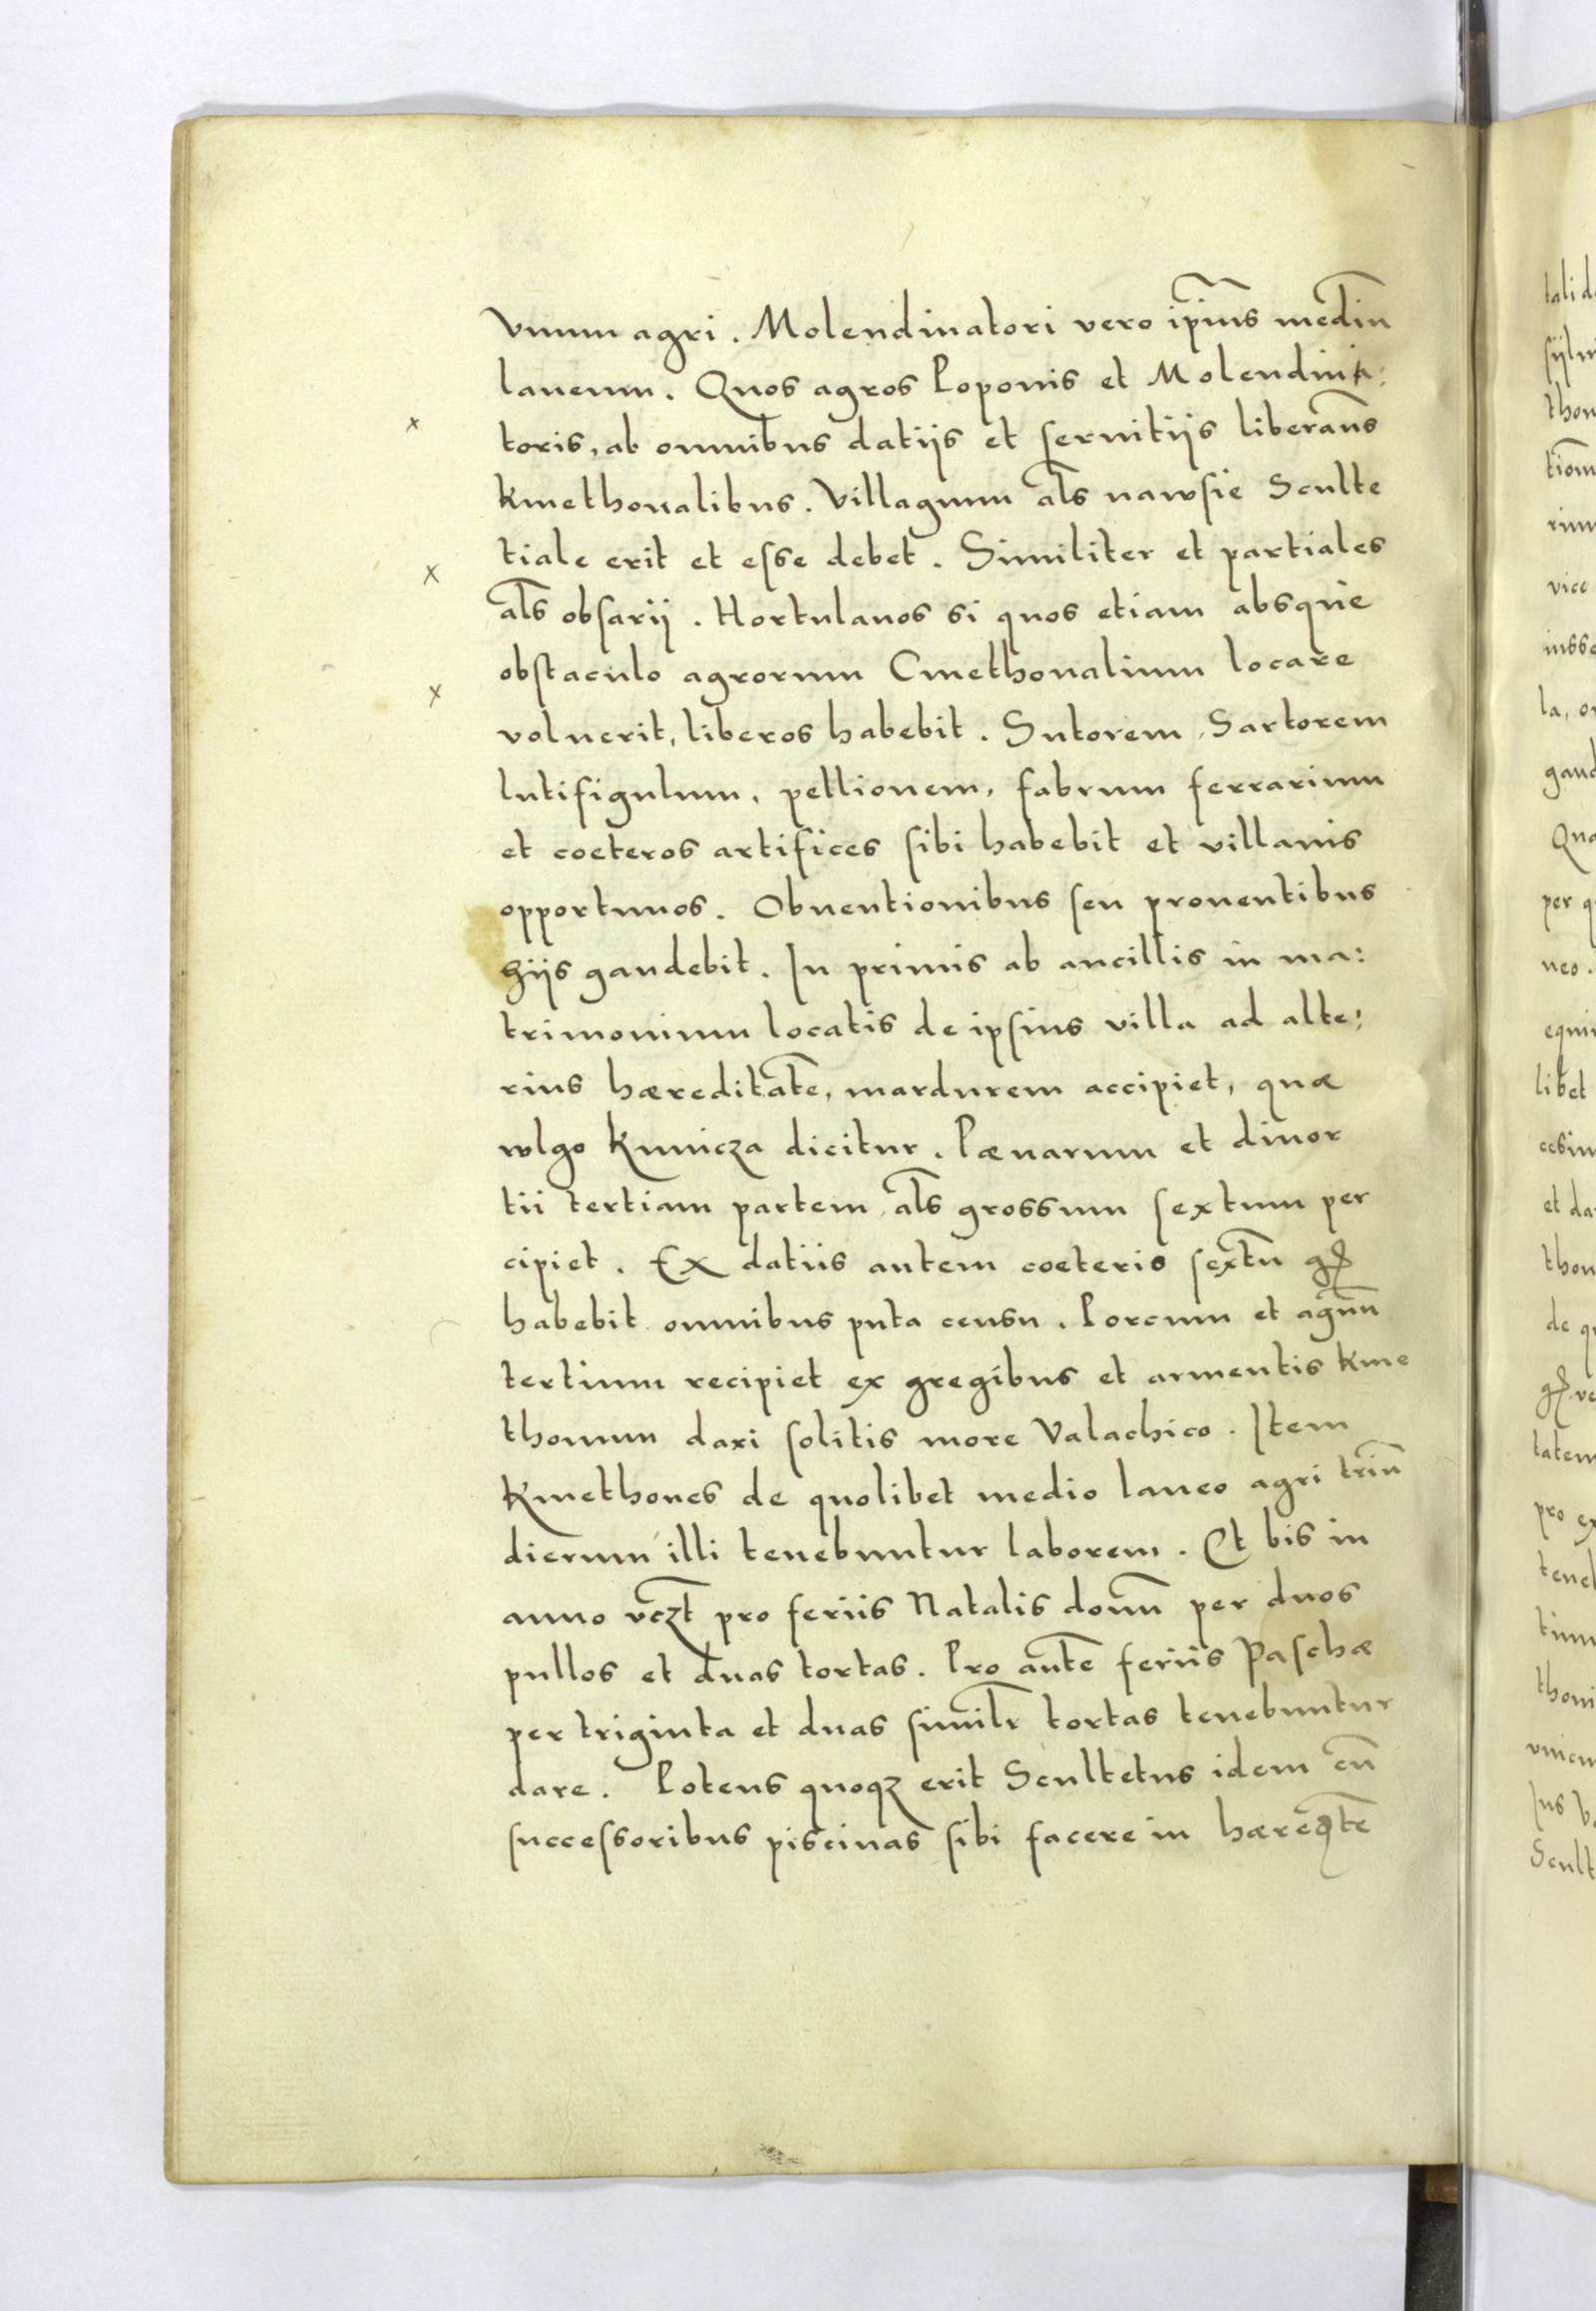 vnum agri. Molendinatori vero ip̄ius mediū
laneum. Quos agros Poponis et Molendina:
toris, ab omnibus datijs et seruitijs liberam̄s
kmethonalibus. Villagium al̄s nawsie Sculte
tiale erit et esse debet. Similiter et partiales
al̄s obsarij. Hortulanos si quos etiam absque
obstaculo agrorum Cmethonalium locare
voluerit, liberos habebit. Sutorem, Sartorem
lutifigulum, pellionem, fabrum ferrarium
et coeteros artifices sibi habebit et villanis
opportunos. Obuentionibus seu prouentibus
hijs gaudebit. In primis ab ancillis in ma:
trimonium locatis de ipsius villa ad alte:
rius hæreditatē, mardurem accipiet, quæ
wlgo kunicza dicitur. Pænarum et diuor
tii tertiam partem, al̄s grossum sextum per
cipiet. Ex datiis autem coeteris sextū
habebit omnibus puta censu. Porcum et agnū
tertium recipiet ex gregibus et armentis kme
thonum dari solitis more Valachico. Item
Kmethones de quolibet medio laneo agri triū
dierum illi tenebuntur laborem. Et bis in
anno vczt̄ pro feriis Natalis domī per duos
pullos et duas tortas. Pro autē feriis Paschæ
per triginta et duas similr̄ tortas tenebuntur
dare. Potens quoqz erit Scultetus idem cū
successoribus piscinas sibi facere in
tali d
thon
vice
la, or
gaud
Qua
per q
neo.
libet
et da
thon
de q
tatem
pro ex
teneb
Scult